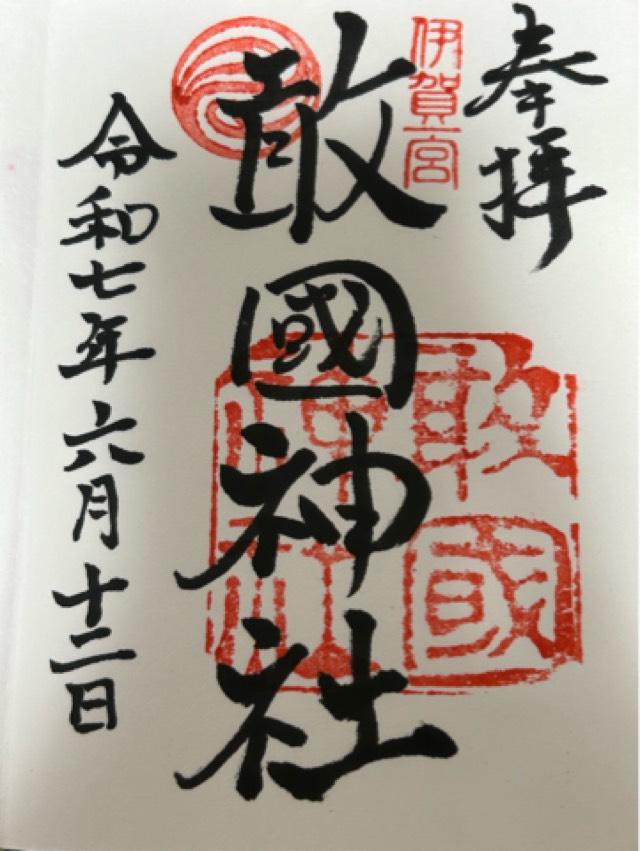 奉拝
伊賀一宮
敢國神社
敢國神社
令和七年六月十二日